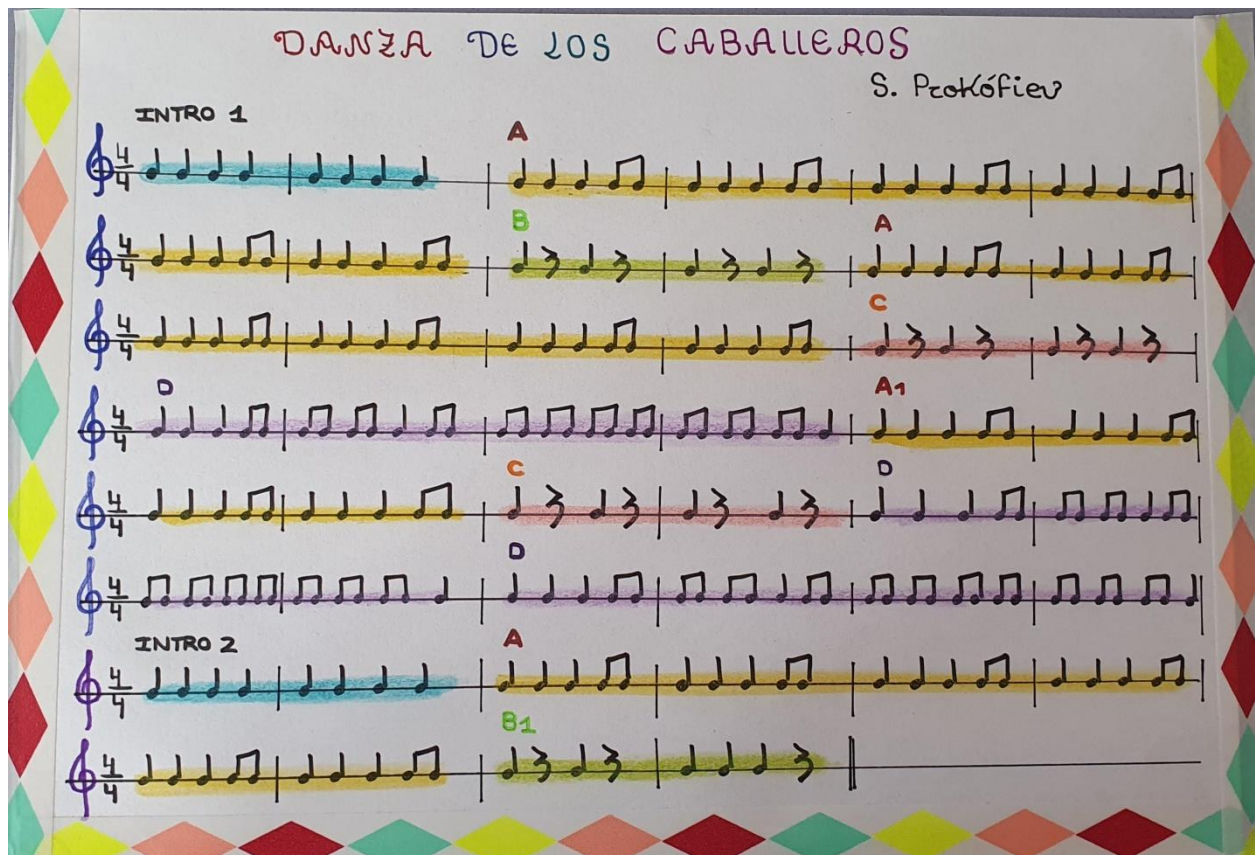 DANZA DE LOS CABALLEROS
S. Prokófiev
INTRO 1
A
4/4
B A
4/4
C
4/4
D A1
4/4
C D
4/4
D
4/4
INTRO 2 A
4/4
B1
4/4